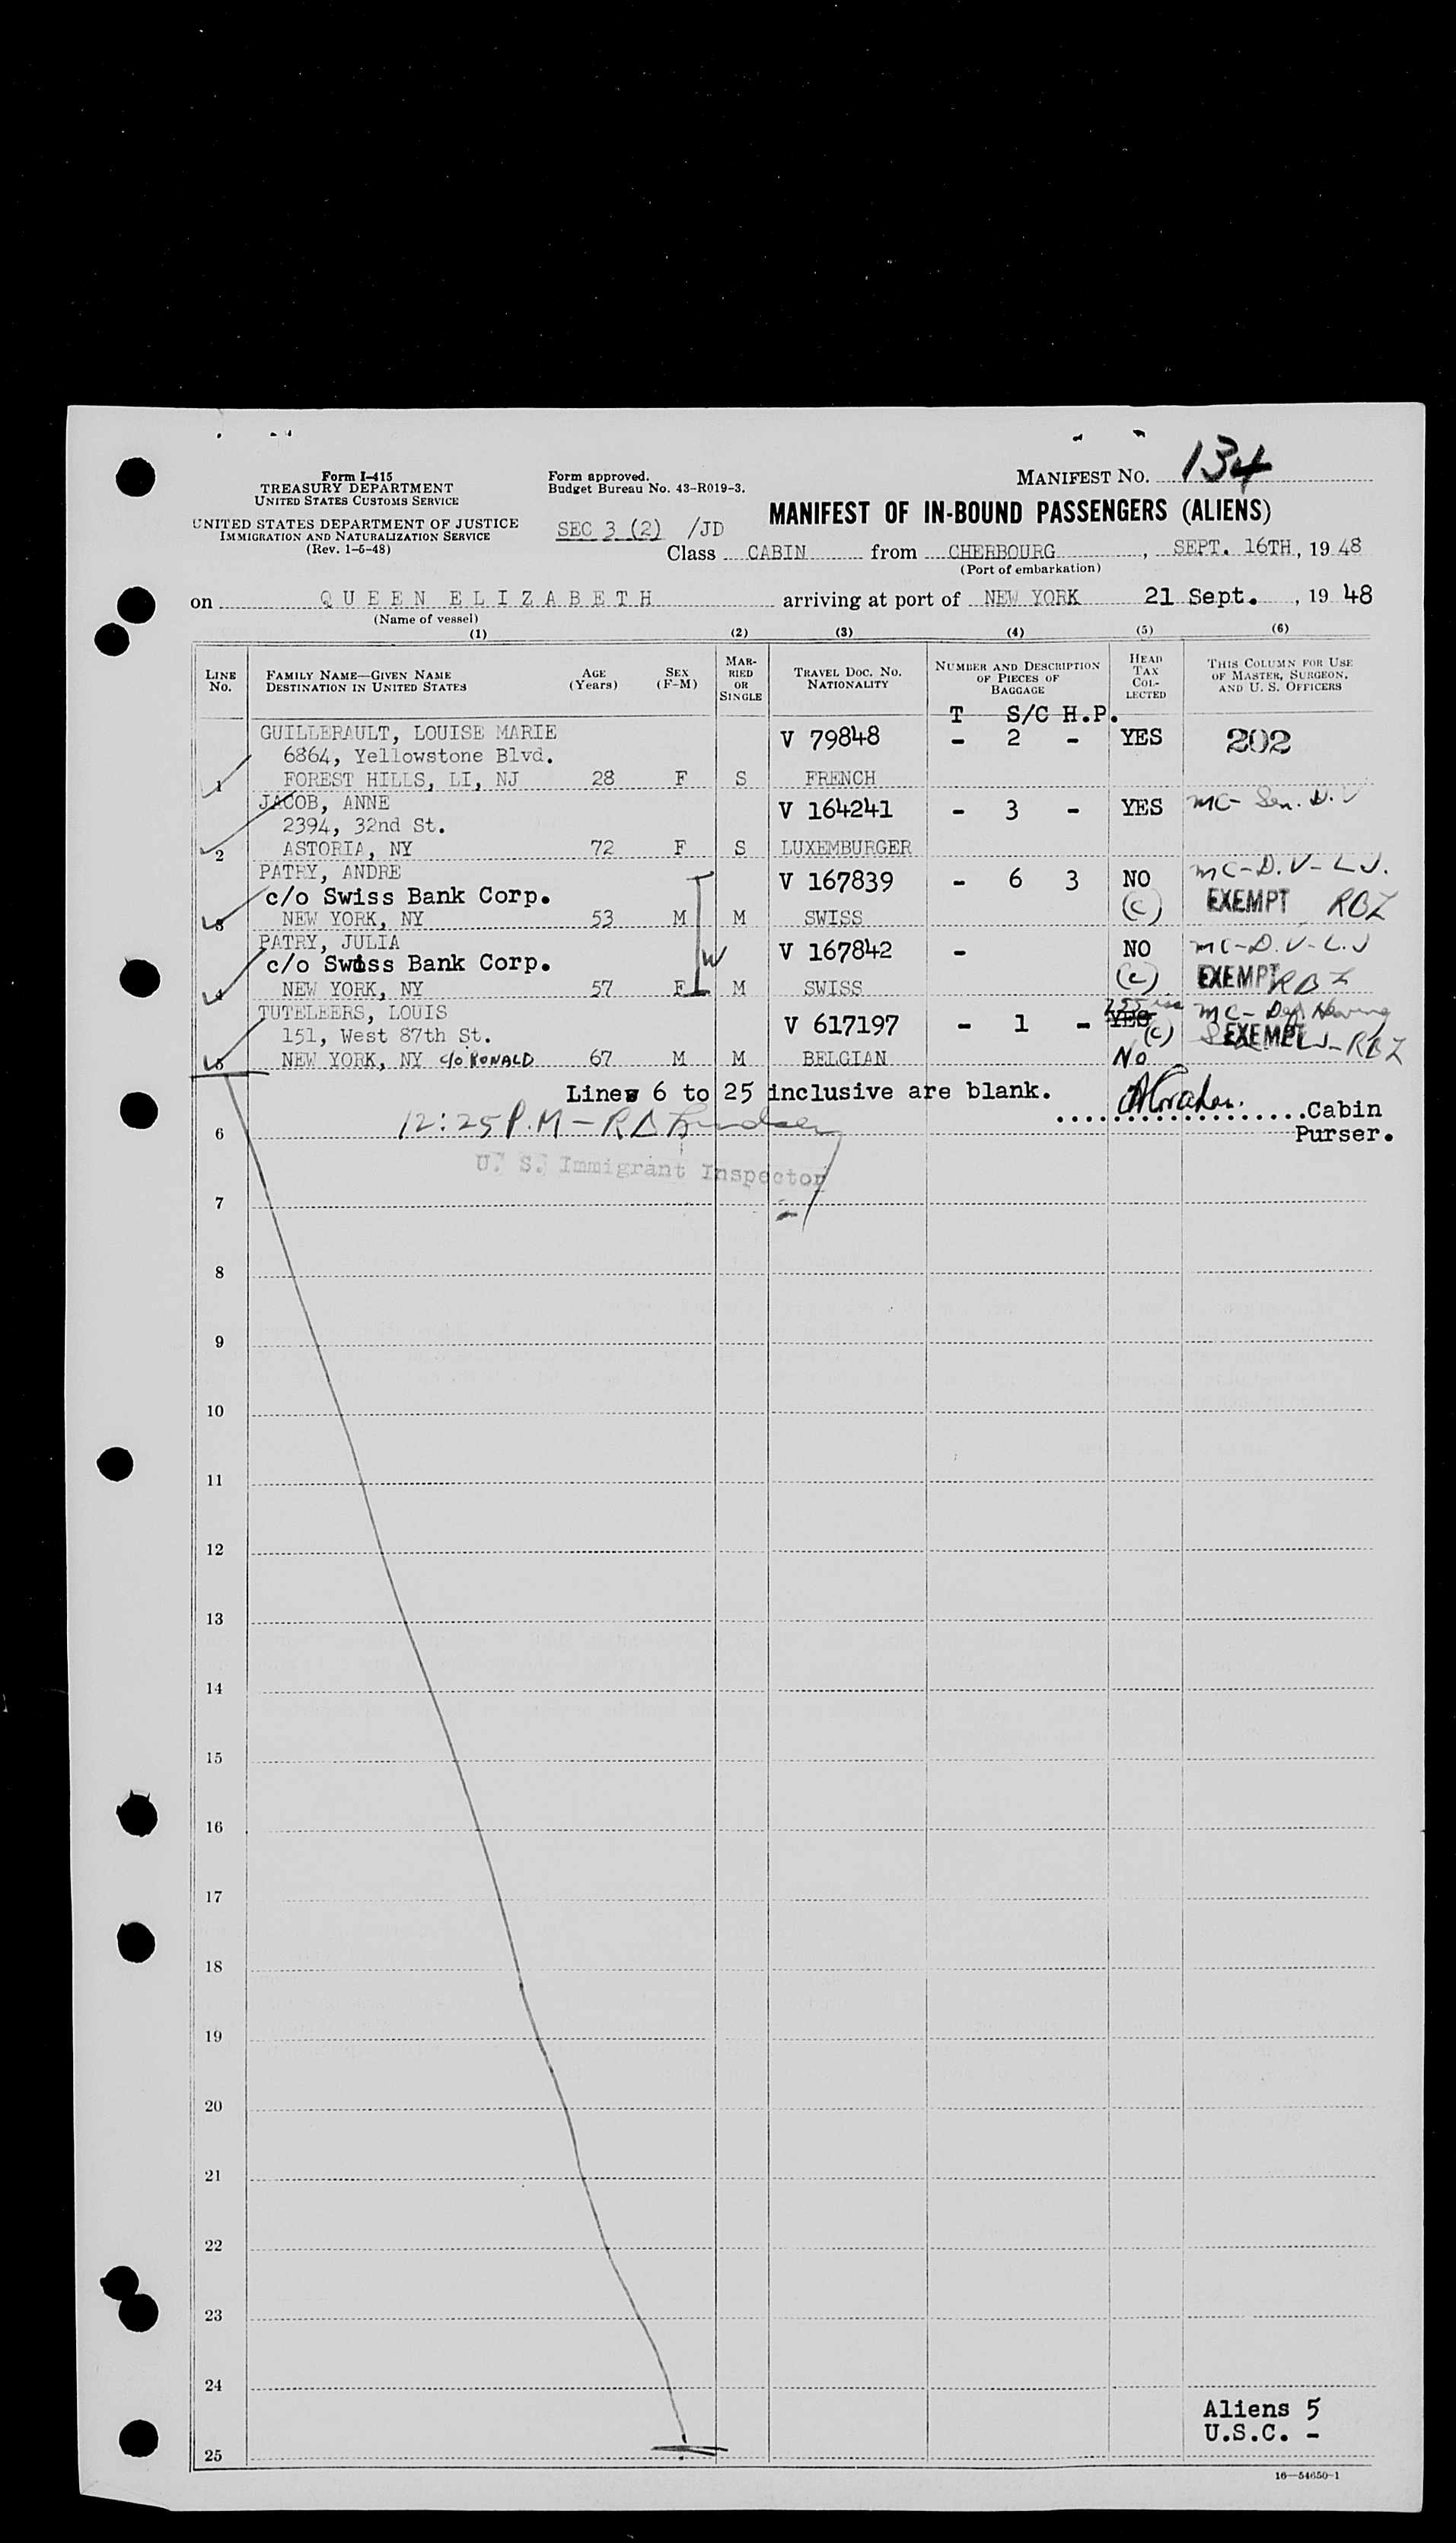 MANIFEST NO. 134
Form I-415
TREASURY DEPARTMENT
UNITED STATES CUSTOMS SERVICE
UNITED STATES DEPARTMENT OF JUSTICE
IMMIGRATION AND NATURALIZATION SERVICE
(Rev. 1-5-48)
Form approved.
Budget Bureau No. 43-R019-3.
SEC 3 (2) /JD
MANIFEST OF IN-BOUND PASSENGERS (ALIENS)
Class CABIN from CHERBOURG, SEPT. 16TH, 1948
(Port of embarkation)
on QUEEN ELIZABETH arriving at port of NEW YORK 21 Sept., 1948
(Name of vessel)
(1) (2) (3) (4) (5) (6)
LINE NO.
FAMILY NAME—GIVEN NAME
DESTINATION IN UNITED STATES
AGE (Years)
SEX (F-M)
MARRIED OR SINGLE
TRAVEL DOC. NO.
NATIONALITY
NUMBER AND DESCRIPTION OF PIECES OF BAGGAGE
HEAD TAX COLLECTED
THIS COLUMN FOR USE OF MASTER, SURGEON, AND U. S. OFFICERS
T S/C H.P.
GUILLERAULT, LOUISE MARIE V 79848 - 2 - YES 202
6864, Yellowstone Blvd.
1 FOREST HILLS, LI, NJ 28 F S FRENCH
JACOB, ANNE V 164241 - 3 - YES MC- Sen. D.V
2394, 32nd St.
2 ASTORIA, NY 72 F S LUXEMBURGER
PATRY, ANDRE V 167839 - 6 3 NO MC-D.V-L.J.
c/o Swiss Bank Corp. (c) EXEMPT RBL
3 NEW YORK, NY 53 M M SWISS
PATRY, JULIA V 167842 - NO MC-D.V-L.J
c/o Swiss Bank Corp. W (c) EXEMPT RBL
4 NEW YORK, NY 57 F M SWISS
TUTELEERS, LOUIS V 617197 - 1 - YES MC- Def Hearing
151, West 87th St. (c) EXEMPT RBL
5 NEW YORK, NY C/O RONALD 67 M M BELGIAN No
Lines 6 to 25 inclusive are blank.
Cabin
Purser.
12:25 P.M - R B Lindsey
U. S. Immigrant Inspector
6
7
8
9
10
11
12
13
14
15
16
17
18
19
20
21
22
23
24
25
Aliens 5
U.S.C. -
16—54650-1